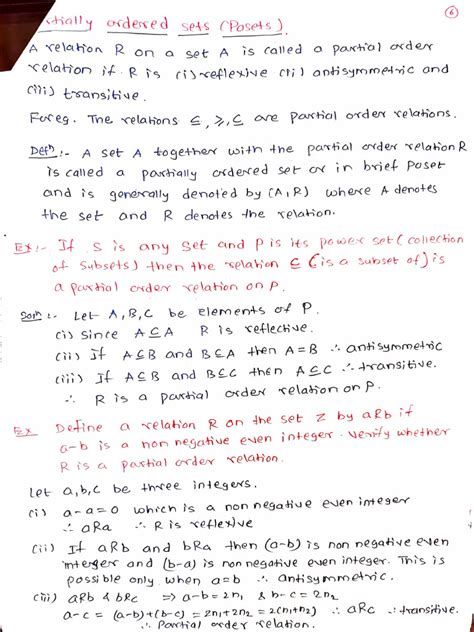 rtially ordered sets (Posets).
6
A relation R on a set A is called a partial order
relation if R is (i) reflexive (ii) antisymmetric and
(iii) transitive.
Foreg. The relations ⊆, ≥, ⊂ are partial order relations.
Defn :- A set A together with the partial order relation R
is called a partially ordered set or in brief Poset
and is generally denoted by (A, R) where A denotes
the set and R denotes the relation.
Ex :- If S is any set and P is its power set (collection
of subsets) then the relation ⊆ (is a subset of) is
a partial order relation on P.
Soln :- Let A, B, C be elements of P.
(i) Since A⊆A R is reflective.
(ii) If A⊆B and B⊆A then A=B ∴ antisymmetric
(iii) If A⊆B and B⊆C then A⊆C ∴ transitive.
∴ R is a partial order relation on P.
Ex Define a relation R on the set Z by aRb if
a-b is a non negative even integer. Verify whether
R is a partial order relation.
Let a, b, c be three integers.
(i) a-a=0 which is a non negative even integer
∴ aRa ∴ R is reflexive
(ii) If aRb and bRa then (a-b) is non negative even
integer and (b-a) is non negative even integer. This is
possible only when a=b ∴ Antisymmetric.
(iii) aRb & bRc ⇒ a-b=2n1 & b-c=2n2
a-c = (a-b)+(b-c) = 2n1+2n2 = 2(n1+n2) ∴ aRc ∴ transitive.
∴ Partial order relation.